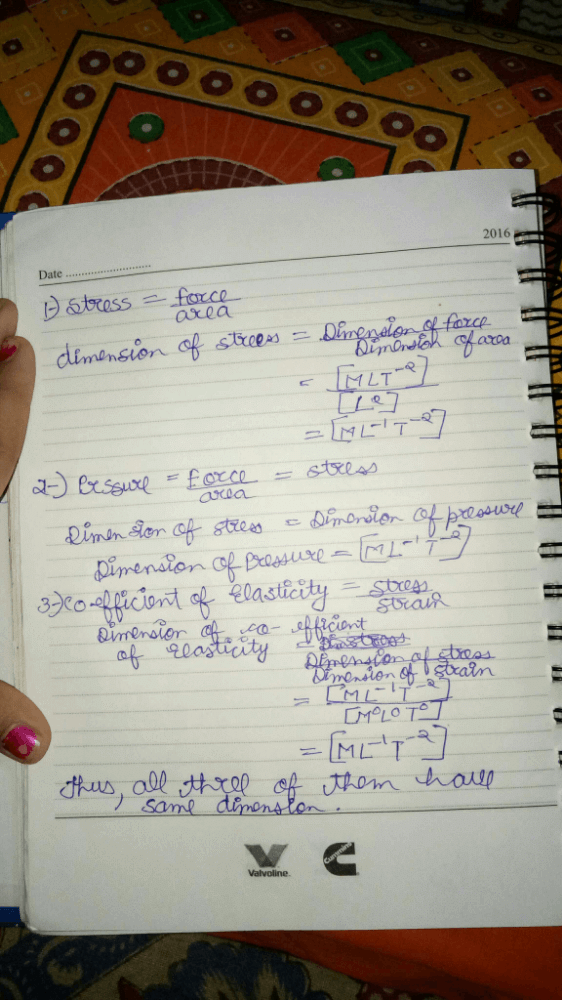 2016
Date ............................
1-) Stress = force / area
dimension of stress = Dimension of force / Dimension of area
= [MLT⁻²] / [L²]
= [ML⁻¹T⁻²]
2-) Pressure = force / area = stress
Dimension of stress = Dimension of pressure
Dimension of Pressure = [ML⁻¹T⁻²]
3-) Co-efficient of Elasticity = stress / strain
Dimension of co-efficient
of Elasticity = Dimension of stress / Dimension of strain
= [ML⁻¹T⁻²] / [M⁰L⁰T⁰]
= [ML⁻¹T⁻²]
thus, all three of them have
same dimension.
Valvoline
Cummins